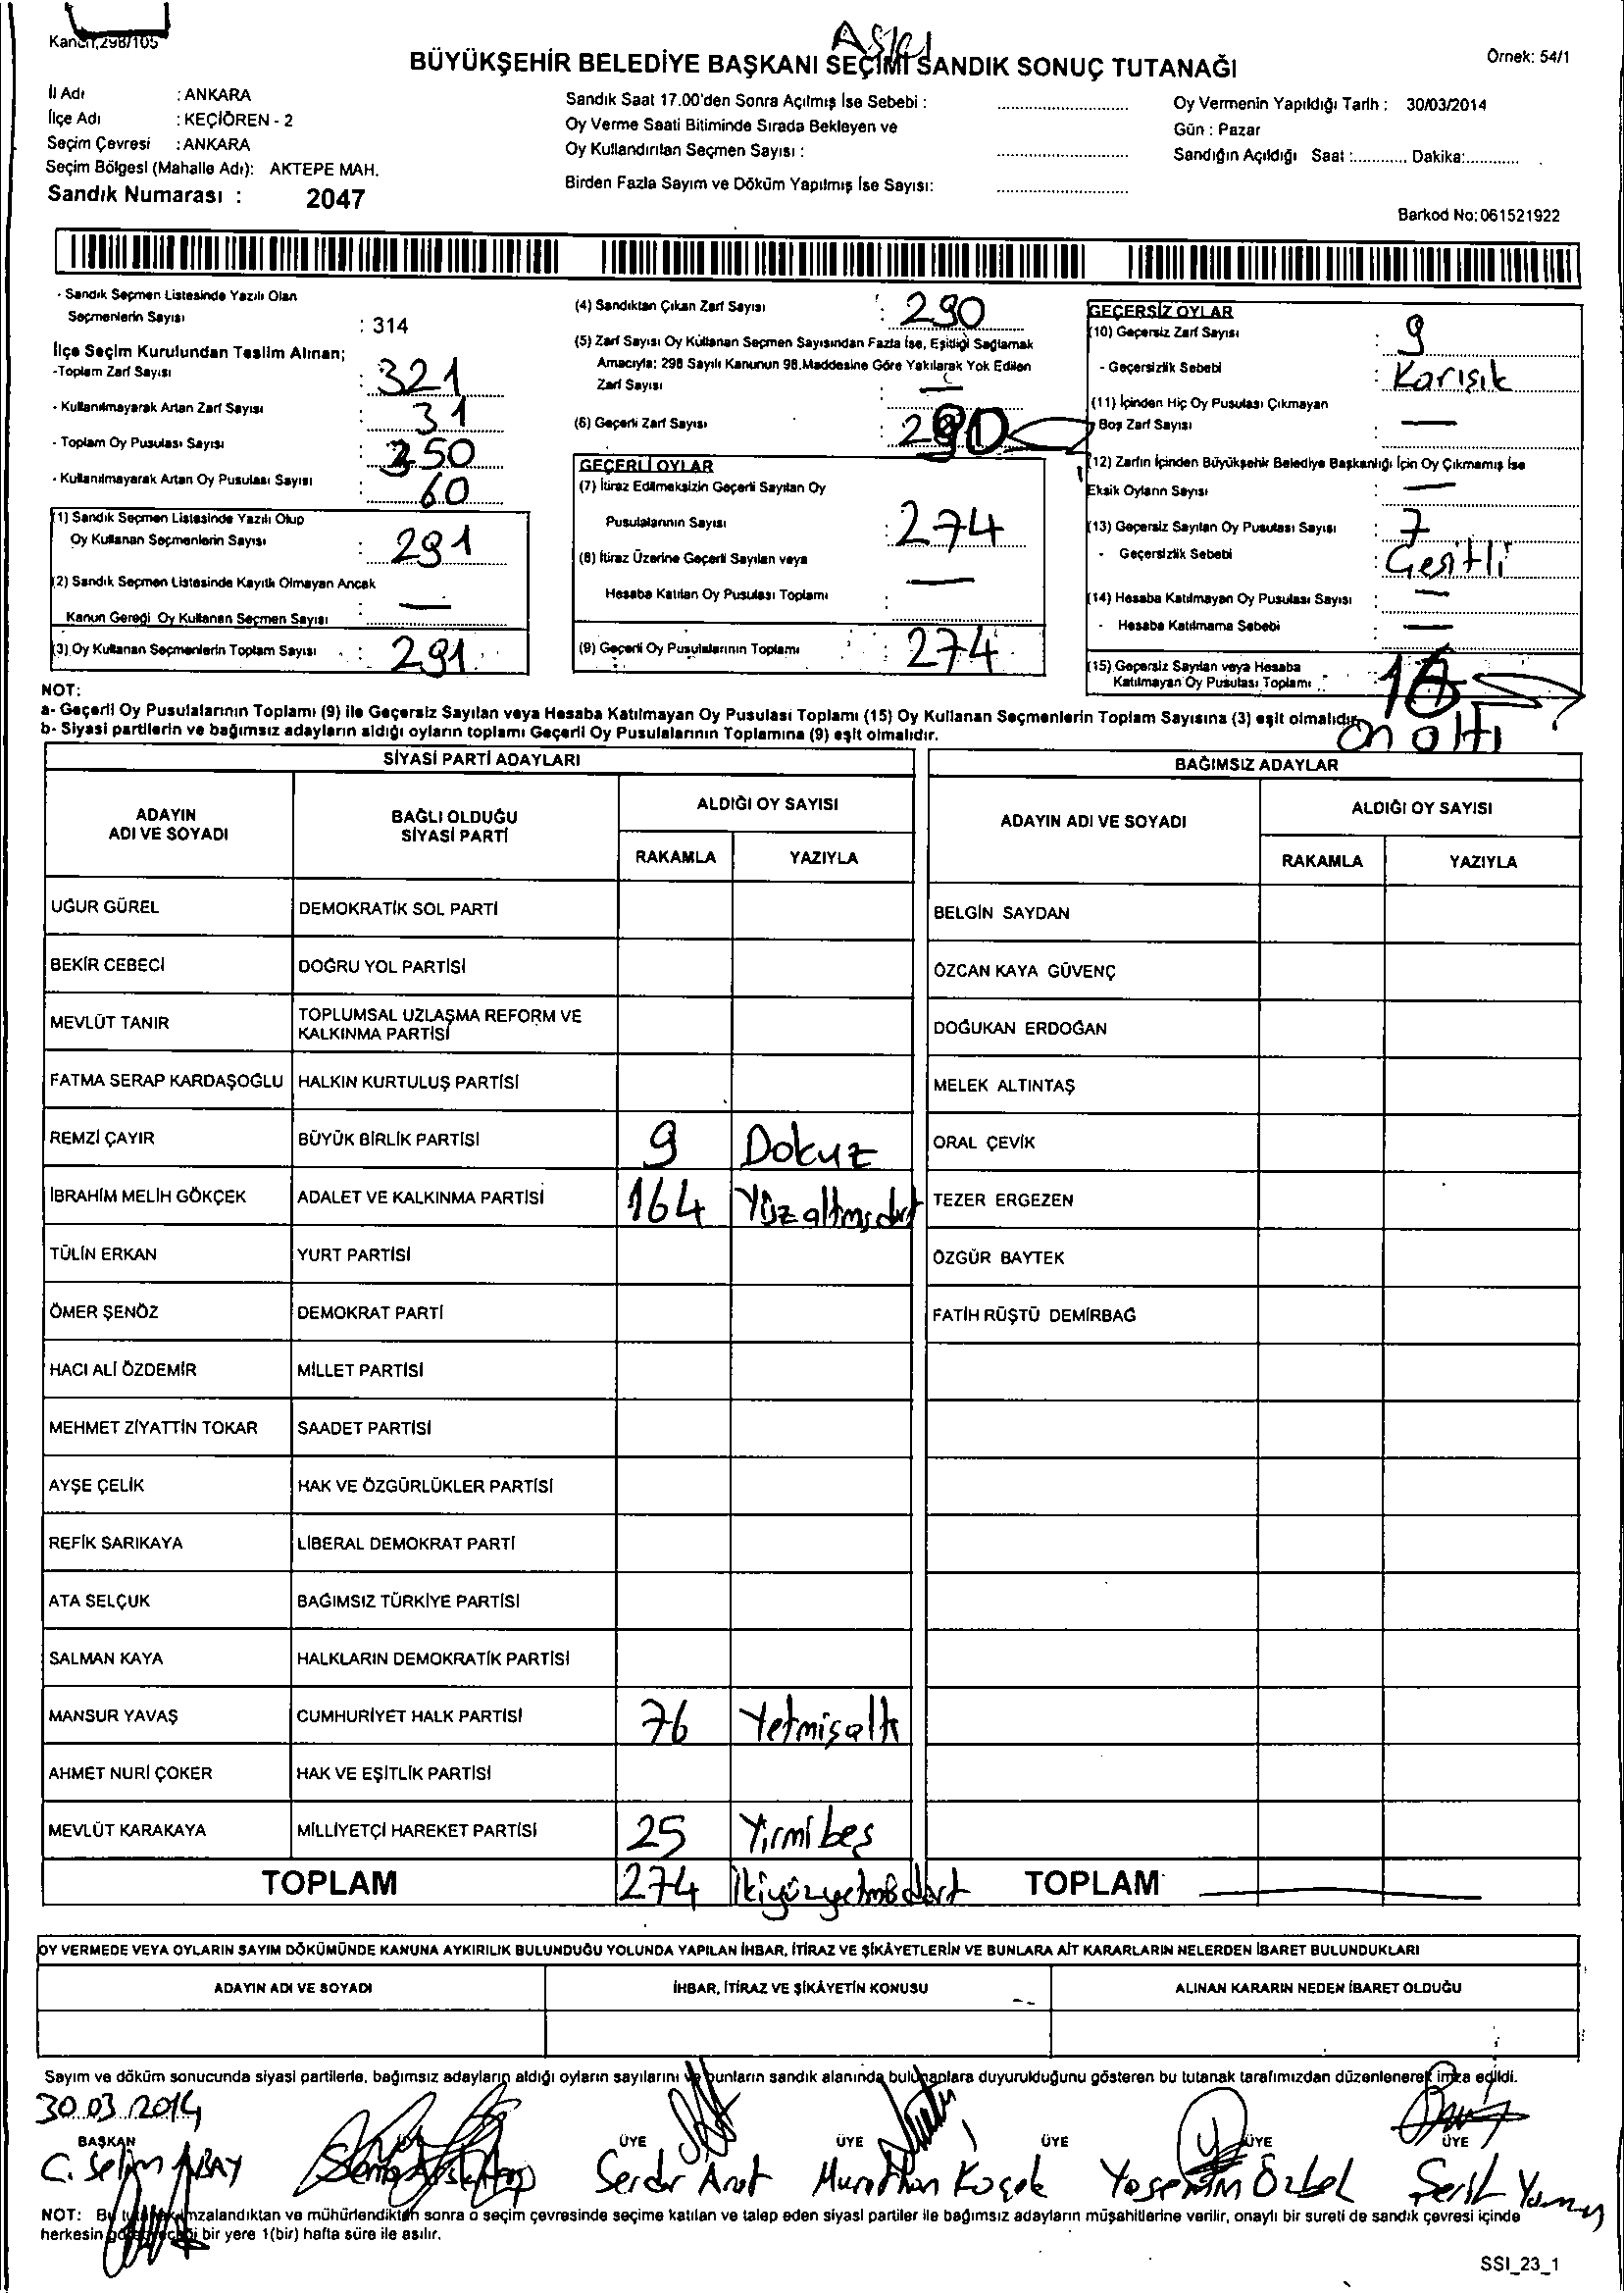 Kanun,298/105
Aslı
BÜYÜKŞEHİR BELEDİYE BAŞKANI SEÇİMİ SANDIK SONUÇ TUTANAĞI
Örnek: 54/1
İl Adı : ANKARA
İlçe Adı : KEÇİÖREN - 2
Seçim Çevresi : ANKARA
Seçim Bölgesi (Mahalle Adı): AKTEPE MAH.
Sandık Numarası : 2047
Sandık Saat 17.00'den Sonra Açılmış İse Sebebi :
Oy Verme Saati Bitiminde Sırada Bekleyen ve
Oy Kullandırılan Seçmen Sayısı :
Birden Fazla Sayım ve Döküm Yapılmış İse Sayısı:
Oy Vermenin Yapıldığı Tarih : 30/03/2014
Gün : Pazar
Sandığın Açıldığı Saat :............ Dakika:............
Barkod No: 061521922
- Sandık Seçmen Listesinde Yazılı Olan
Seçmenlerin Sayısı : 314
İlçe Seçim Kurulundan Teslim Alınan;
-Toplam Zarf Sayısı : 321
- Kullanılmayarak Artan Zarf Sayısı : 31
- Toplam Oy Pusulası Sayısı : 350
- Kullanılmayarak Artan Oy Pusulası Sayısı : 60
(1) Sandık Seçmen Listesinde Yazılı Olup
Oy Kullanan Seçmenlerin Sayısı : 291
(2) Sandık Seçmen Listesinde Kayıtlı Olmayan Ancak
Kanun Gereği Oy Kullanan Seçmen Sayısı : —
(3) Oy Kullanan Seçmenlerin Toplam Sayısı : 291
(4) Sandıktan Çıkan Zarf Sayısı : 290
(5) Zarf Sayısı Oy Kullanan Seçmen Sayısından Fazla İse, Eşitliği Sağlamak
Amacıyla; 298 Sayılı Kanunun 98.Maddesine Göre Yakılarak Yok Edilen
Zarf Sayısı : —
(6) Geçerli Zarf Sayısı : 290
GEÇERLİ OYLAR
(7) İtiraz Edilmeksizin Geçerli Sayılan Oy
Pusulalarının Sayısı : 274
(8) İtiraz Üzerine Geçerli Sayılan veya
Hesaba Katılan Oy Pusulası Toplamı : —
(9) Geçerli Oy Pusulalarının Toplamı : 274
GEÇERSİZ OYLAR
(10) Geçersiz Zarf Sayısı : 9
- Geçersizlik Sebebi : Karışık
(11) İçinden Hiç Oy Pusulası Çıkmayan
Boş Zarf Sayısı : —
(12) Zarfın İçinden Büyükşehir Belediye Başkanlığı İçin Oy Çıkmamış İse
Eksik Oyların Sayısı : —
(13) Geçersiz Sayılan Oy Pusulası Sayısı : 7
- Geçersizlik Sebebi : Çeşitli
(14) Hesaba Katılmayan Oy Pusulası Sayısı : —
- Hesaba Katılmama Sebebi : —
(15) Geçersiz Sayılan veya Hesaba
Katılmayan Oy Pusulası Toplamı : 16
on altı
NOT:
a- Geçerli Oy Pusulalarının Toplamı (9) ile Geçersiz Sayılan veya Hesaba Katılmayan Oy Pusulası Toplamı (15) Oy Kullanan Seçmenlerin Toplam Sayısına (3) eşit olmalıdır.
b- Siyasi partilerin ve bağımsız adayların aldığı oyların toplamı Geçerli Oy Pusulalarının Toplamına (9) eşit olmalıdır.
SİYASİ PARTİ ADAYLARI
ADAYIN ADI VE SOYADI
BAĞLI OLDUĞU SİYASİ PARTİ
ALDIĞI OY SAYISI
RAKAMLA YAZIYLA
UĞUR GÜREL DEMOKRATİK SOL PARTİ
BEKİR CEBECİ DOĞRU YOL PARTİSİ
MEVLÜT TANIR TOPLUMSAL UZLAŞMA REFORM VE
KALKINMA PARTİSİ
FATMA SERAP KARDAŞOĞLU HALKIN KURTULUŞ PARTİSİ
REMZİ ÇAYIR BÜYÜK BİRLİK PARTİSİ 9 Dokuz
İBRAHİM MELİH GÖKÇEK ADALET VE KALKINMA PARTİSİ 164 Yüzaltmışdört
TÜLİN ERKAN YURT PARTİSİ
ÖMER ŞENÖZ DEMOKRAT PARTİ
HACI ALİ ÖZDEMİR MİLLET PARTİSİ
MEHMET ZİYATTİN TOKAR SAADET PARTİSİ
AYŞE ÇELİK HAK VE ÖZGÜRLÜKLER PARTİSİ
REFİK SARIKAYA LİBERAL DEMOKRAT PARTİ
ATA SELÇUK BAĞIMSIZ TÜRKİYE PARTİSİ
SALMAN KAYA HALKLARIN DEMOKRATİK PARTİSİ
MANSUR YAVAŞ CUMHURİYET HALK PARTİSİ 76 Yetmişaltı
AHMET NURİ ÇOKER HAK VE EŞİTLİK PARTİSİ
MEVLÜT KARAKAYA MİLLİYETÇİ HAREKET PARTİSİ 25 Yirmibeş
TOPLAM 274 İkiyüzyetmişdört
BAĞIMSIZ ADAYLAR
ADAYIN ADI VE SOYADI
ALDIĞI OY SAYISI
RAKAMLA YAZIYLA
BELGİN SAYDAN
ÖZCAN KAYA GÜVENÇ
DOĞUKAN ERDOĞAN
MELEK ALTINTAŞ
ORAL ÇEVİK
TEZER ERGEZEN
ÖZGÜR BAYTEK
FATİH RÜŞTÜ DEMİRBAĞ
TOPLAM —
OY VERMEDE VEYA OYLARIN SAYIM DÖKÜMÜNDE KANUNA AYKIRILIK BULUNDUĞU YOLUNDA YAPILAN İHBAR, İTİRAZ VE ŞİKÂYETLERİN VE BUNLARA AİT KARARLARIN NELERDEN İBARET BULUNDUKLARI
ADAYIN ADI VE SOYADI İHBAR, İTİRAZ VE ŞİKÂYETİN KONUSU ALINAN KARARIN NEDEN İBARET OLDUĞU
Sayım ve döküm sonucunda siyasi partilerle, bağımsız adayların aldığı oyların sayılarını ve bunların sandık alanında bulunanlara duyurulduğunu gösteren bu tutanak tarafımızdan düzenlenerek imza edildi.
30.03.2014
BAŞKAN ÜYE ÜYE ÜYE ÜYE ÜYE
C. Selim Serdar Murathan Koçak Yasemin Özbel
NOT: Bu tutanak imzalandıktan ve mühürlendikten sonra o seçim çevresinde seçime katılan ve talep eden siyasi partiler ile bağımsız adayların müşahitlerine verilir, onaylı bir sureti de sandık çevresi içinde
herkesin görebileceği bir yere 1(bir) hafta süre ile asılır.
SSI_23_1